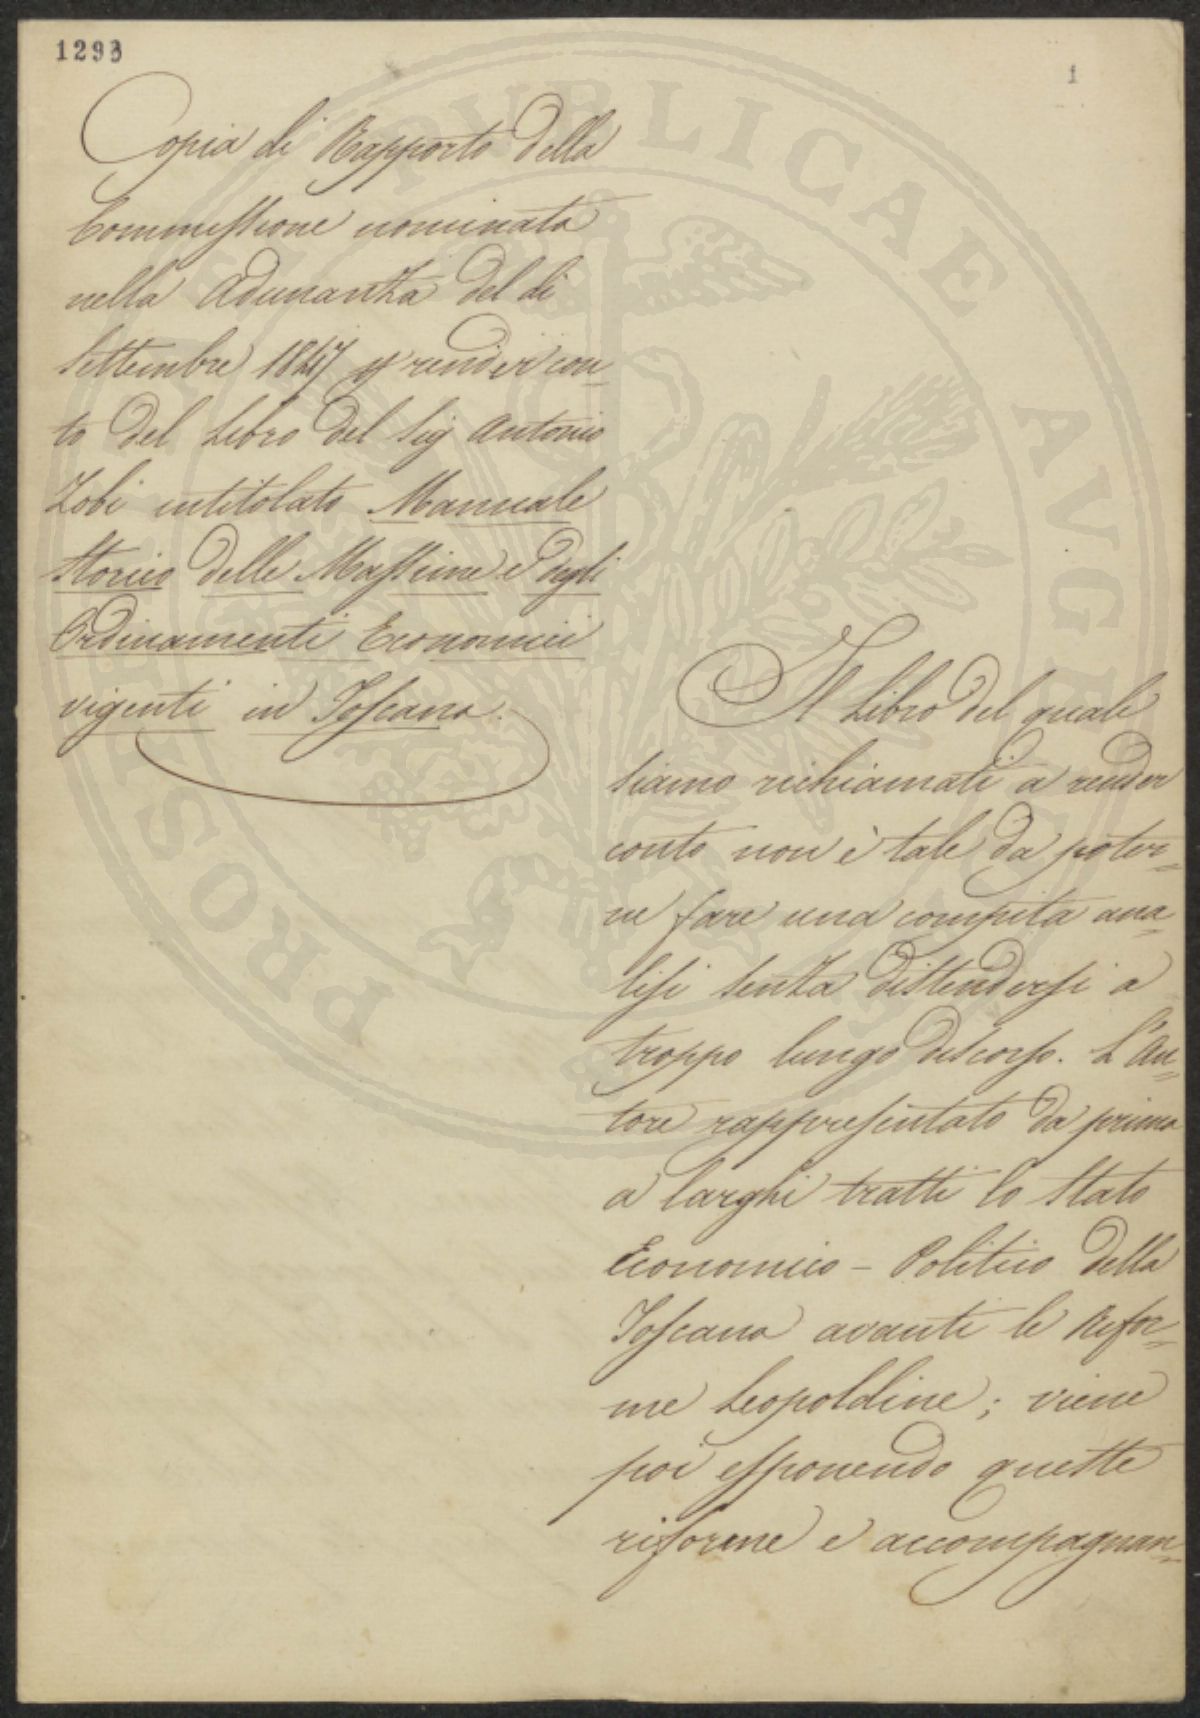 1293
1
Copia di Rapporto della
Commissione nominata
nella Adunanza del di
Settembre 1847 render con-
to del Libro del Sig Antonio
Zobi intitolato Manuale
Storico delle Massime e degli
Ordinamenti Economici
vigenti in Toscana.
Il Libro del quale
siamo richiamati a render
conto non è tale da poter=
ne fare una compita ana=
lisi senza distendersi a
troppo lungo discorso. L'Au=
tore rappresentato da prima
a larghi tratti lo Stato
Economico - Politico della
Toscana avanti le Rifor=
me Leopoldine; viene
poi esponendo queste
riforme e accompagnan=
PROSPERITATI PUBLICAE AVGENDAE